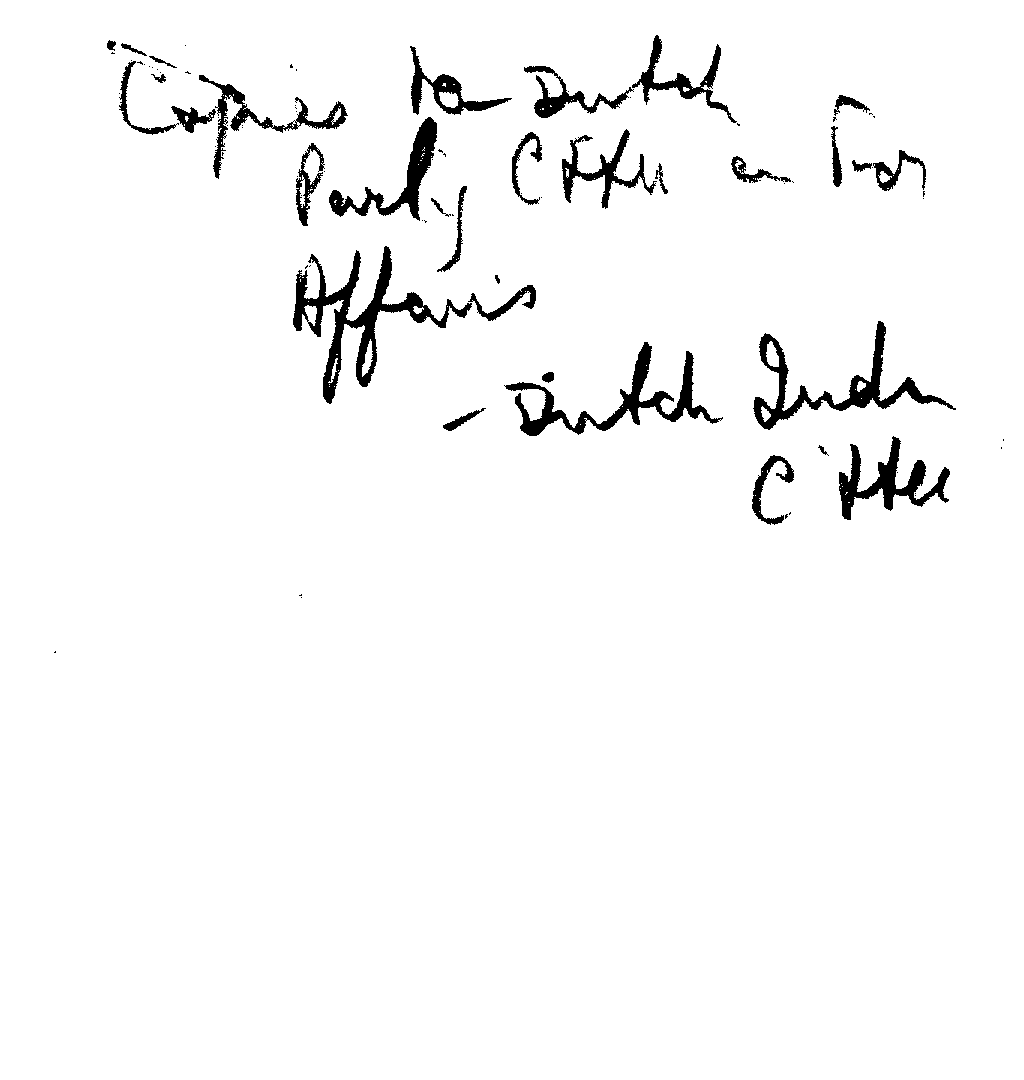 Copies to - Dutch
Party Cttee on For
Affairs
- Dutch India
Cttee